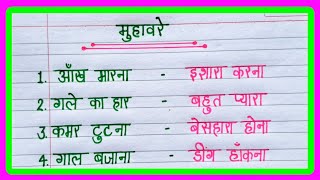 मुहावरे
1. आँख मारना - इशारा करना
2. गले का हार - बहुत प्यारा
3. कमर टुटना - बेसहारा होना
4. गाल बजाना - डींग हाँकना